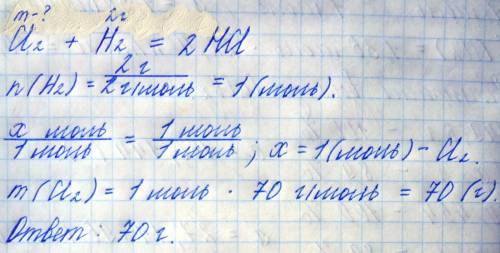 m-? 2г
Cl₂ + H₂ = 2 HCl
n(H₂) = 2 г / 2 г/моль = 1 (моль).
x моль / 1 моль = 1 моль / 1 моль ; x = 1 (моль) - Cl₂.
m(Cl₂) = 1 моль · 70 г/моль = 70 (г).
Ответ: 70 г.